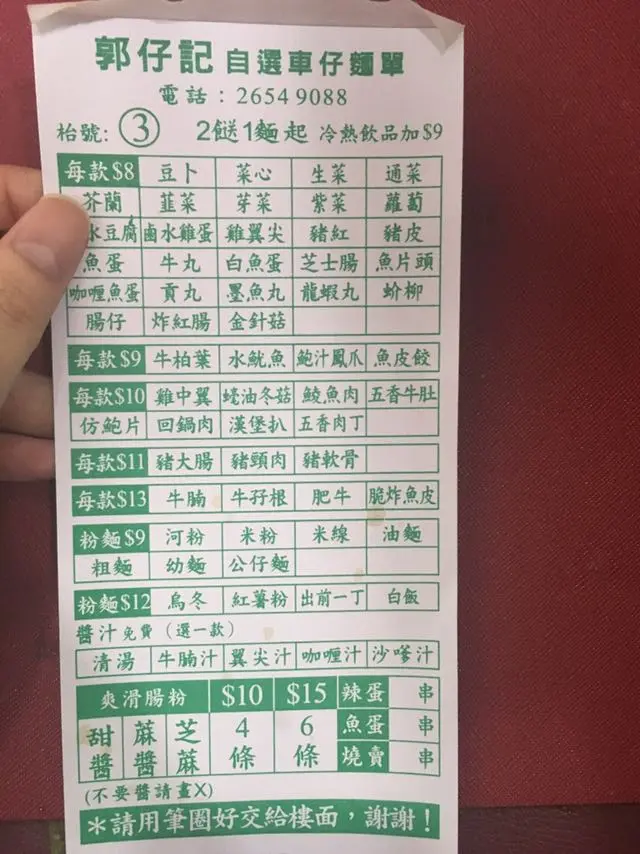 郭仔記 自選車仔麵單
電話：2654 9088
枱號: ③ 2餸1麵起 冷熱飲品加$9
每款$8 豆卜 菜心 生菜 通菜
芥蘭 韮菜 芽菜 紫菜 蘿蔔
水豆腐 鹵水雞蛋 雞翼尖 豬紅 豬皮
魚蛋 牛丸 白魚蛋 芝士腸 魚片頭
咖喱魚蛋 貢丸 墨魚丸 龍蝦丸 蚧柳
腸仔 炸紅腸 金針菇
每款$9 牛柏葉 水魷魚 鮑汁鳳爪 魚皮餃
每款$10 雞中翼 蠔油冬菇 鯪魚肉 五香牛肚
仿鮑片 回鍋肉 漢堡扒 五香肉丁
每款$11 豬大腸 豬頸肉 豬軟骨
每款$13 牛腩 牛孖根 肥牛 脆炸魚皮
粉麵$9 河粉 米粉 米線 油麵
粗麵 幼麵 公仔麵
粉麵$12 烏冬 紅薯粉 出前一丁 白飯
醬汁免費（選一款）
清湯 牛腩汁 翼尖汁 咖喱汁 沙嗲汁
爽滑腸粉 $10 $15 辣蛋 串
甜醬 蔴醬 芝蔴 4條 6條 魚蛋 串
燒賣 串
(不要醬請畫X)
＊請用筆圈好交給樓面，謝謝！